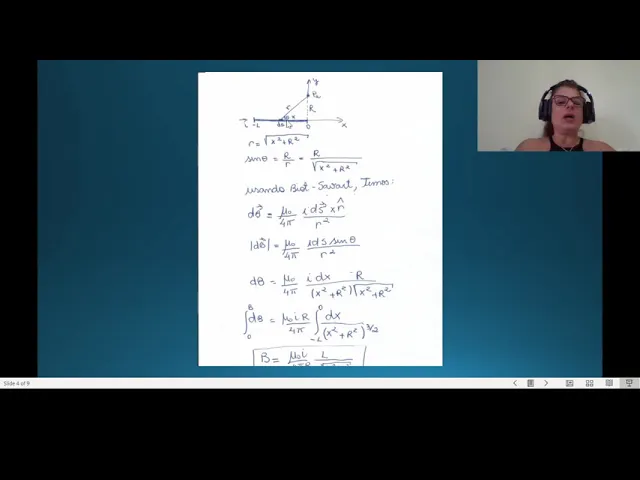 y
P₂
r
R
θ
x
i
-L
ds
0
x
r = √(x² + R²)
senθ = R/r = R/√(x² + R²)
usando Biot-Savart, Temos:
dB⃗ = μ₀/4π i ds⃗ x r̂/r²
|dB⃗| = μ₀/4π i ds senθ/r²
dB = μ₀/4π i dx R/(x² + R²)√(x² + R²)
∫₀ᴮ dB = μ₀ i R/4π ∫₋L⁰ dx/(x² + R²)^3/2
B = μ₀i/4πR L
Slide 4 of 9